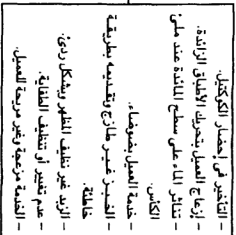 - التأخير في إحضار الكوكتيل.
- إزعاج العميل بتحريك الأطباق الزائدة.
- تناثر الماء على سطح المائدة عند ملئ
الكأس.
- خدمة العميل بضوضاء.
- الخبز غير طازج وتقديمه بطريقة
خاطئة.
- الزبد غير نظيف المظهر وبشكل ردئ.
- عدم تغيير أو تنظيف الطفاية.
- الخدمة مزعجة وغير مريحة للعميل.